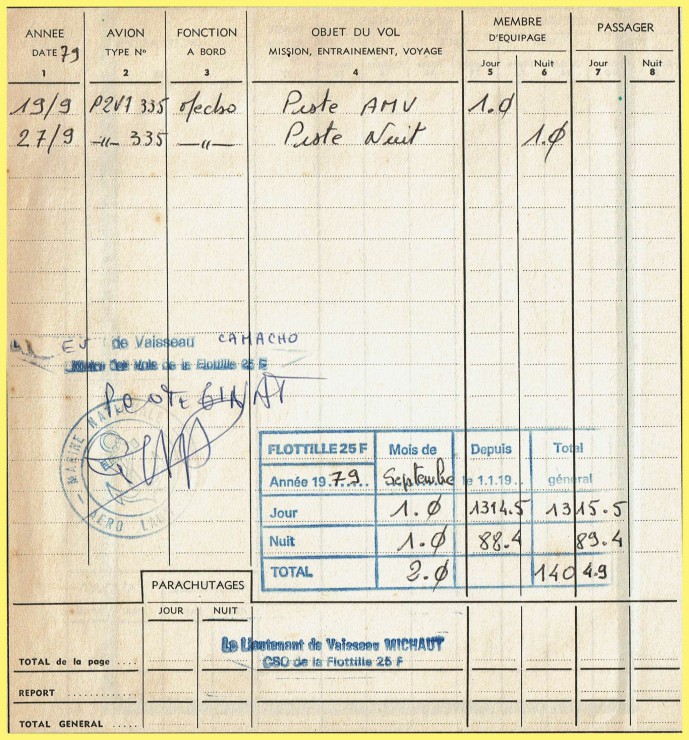 ANNEE AVION FONCTION OBJET DU VOL MEMBRE D'EQUIPAGE PASSAGER
DATE 79 TYPE N° A BORD MISSION, ENTRAINEMENT, VOYAGE Jour Nuit Jour Nuit
1 2 3 4 5 6 7 8
19/9 P2V7 335 Mecbo Piste AMV 1.0
27/9 -"- 335 -"- Piste Nuit 1.0
de Vaisseau CAMACHO
des Vols de la Flottille 25 F
GINAT
MARINE NATIONALE
AERO
FLOTTILLE 25 F Mois de Depuis Total
Année 1979 Septembre le 1.1.19.. général
Jour 1.0 1314.5 1315.5
Nuit 1.0 88.4 89.4
TOTAL 2.0 1404.9
PARACHUTAGES
JOUR NUIT
Le Lieutenant de Vaisseau MICHAUT
CSO de la Flottille 25 F
TOTAL de la page ....
REPORT ............
TOTAL GENERAL .....